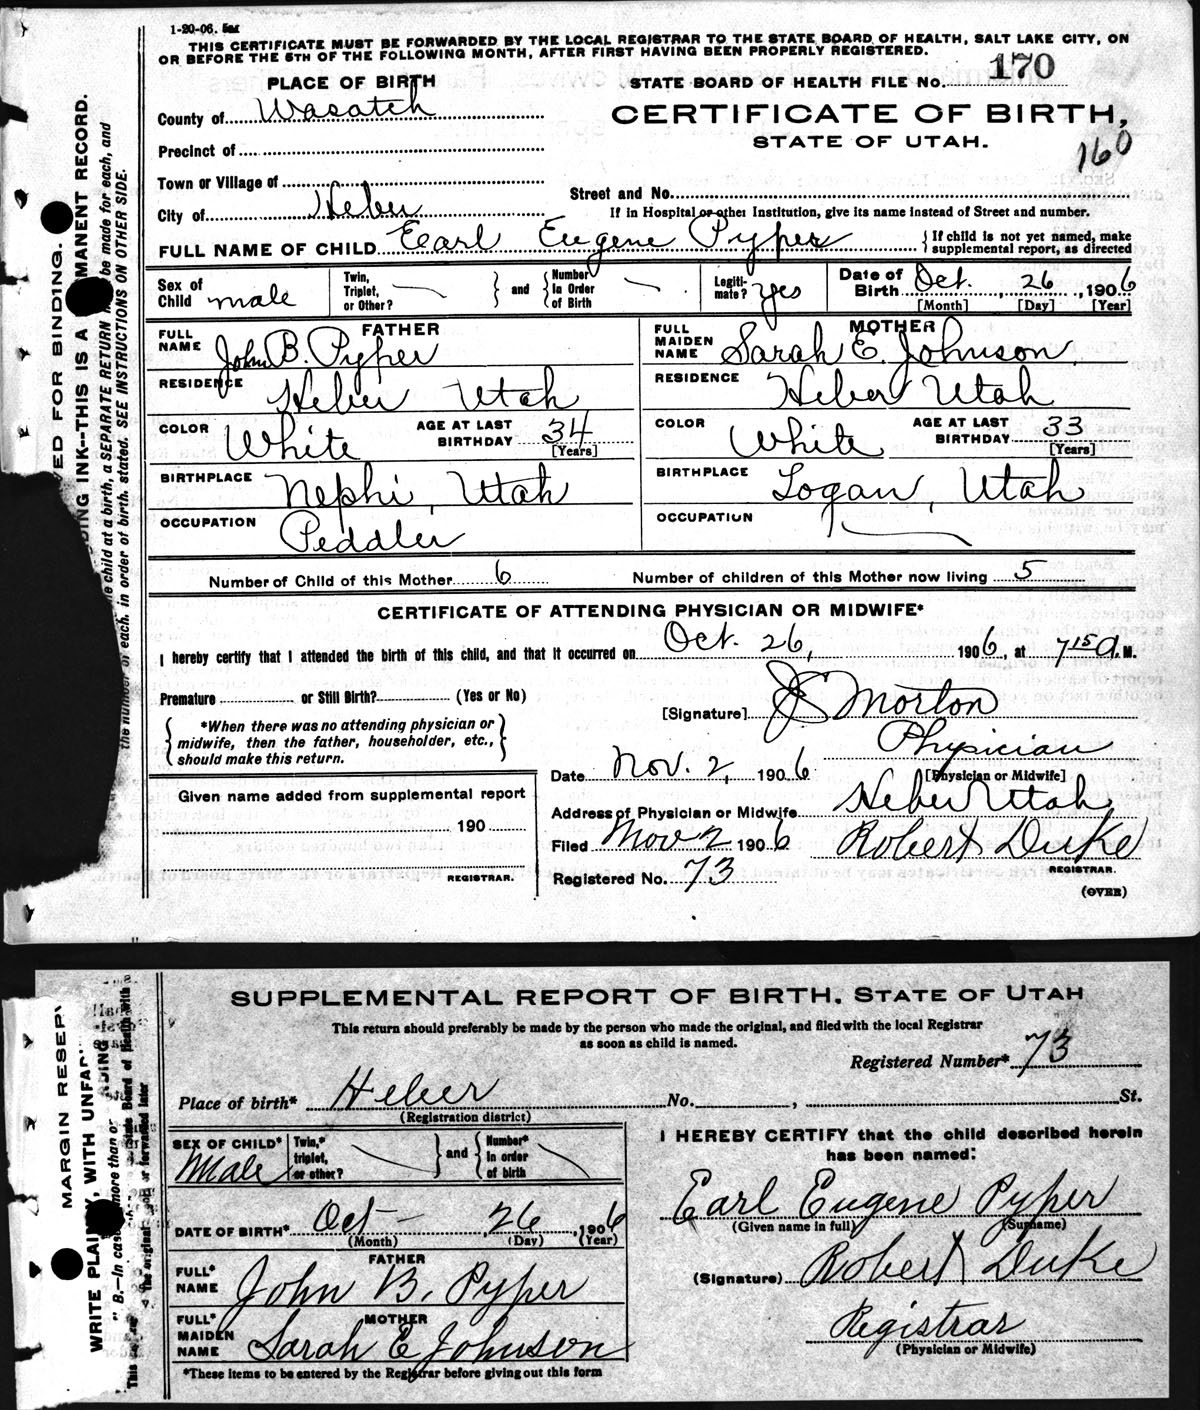 1-20-06.
THIS CERTIFICATE MUST BE FORWARDED BY THE LOCAL REGISTRAR TO THE STATE BOARD OF HEALTH, SALT LAKE CITY, ON
OR BEFORE THE 5TH OF THE FOLLOWING MONTH, AFTER FIRST HAVING BEEN PROPERLY REGISTERED.
PLACE OF BIRTH
STATE BOARD OF HEALTH FILE No. 170
County of Wasatch
CERTIFICATE OF BIRTH,
STATE OF UTAH.
160
Precinct of
Town or Village of
Street and No.
City of Heber
If in Hospital or other Institution, give its name instead of Street and number.
FULL NAME OF CHILD Earl Eugene Pyper
{ If child is not yet named, make supplemental report, as directed
Sex of Child male
Twin, Triplet, or Other?
and
Number In Order of Birth
Legiti-mate? yes
Date of Birth Oct. 26, 1906
[Month] [Day] [Year]
FATHER
FULL NAME John B. Pyper
RESIDENCE Heber Utah
COLOR White
AGE AT LAST BIRTHDAY 34
[Years]
BIRTHPLACE Nephi, Utah
OCCUPATION Peddler
MOTHER
FULL MAIDEN NAME Sarah E. Johnson
RESIDENCE Heber Utah
COLOR White
AGE AT LAST BIRTHDAY 33
[Years]
BIRTHPLACE Logan, Utah
OCCUPATION
Number of Child of this Mother 6
Number of children of this Mother now living 5
CERTIFICATE OF ATTENDING PHYSICIAN OR MIDWIFE*
I hereby certify that I attended the birth of this child, and that it occurred on Oct. 26, 1906, at 7 15 a. M.
Premature or Still Birth? (Yes or No)
[Signature] Morton
Physician
[Physician or Midwife]
*When there was no attending physician or
midwife, then the father, householder, etc.,
should make this return.
Date Nov. 2, 1906
Given name added from supplemental report
190
REGISTRAR.
Address of Physician or Midwife Heber Utah
Filed Nov 2 1906 Robert Duke
REGISTRAR.
Registered No. 73
(OVER)
ED FOR BINDING.
DING INK--THIS IS A MANENT RECORD.
e child at a birth, a SEPARATE RETURN be made for each, and
the number of each, in order of birth, stated. SEE INSTRUCTIONS ON OTHER SIDE.
SUPPLEMENTAL REPORT OF BIRTH. STATE OF UTAH
This return should preferably be made by the person who made the original, and filed with the local Registrar
as soon as child is named.
Registered Number* 73
Place of birth* Heber No. , St.
(Registration district)
SEX OF CHILD* Male
Twin,* triplet, or other?
and
Number* In order of birth
DATE OF BIRTH* Oct - 26, 1906
(Month) (Day) (Year)
FATHER
FULL* NAME John B. Pyper
MOTHER
FULL* MAIDEN NAME Sarah E Johnson
*These items to be entered by the Registrar before giving out this form
I HEREBY CERTIFY that the child described herein
has been named:
Earl Eugene Pyper
(Given name in full) (Surname)
(Signature) Robert Duke
Registrar
(Physician or Midwife)
MARGIN RESERV
WRITE PLAINLY, WITH UNFAD DING
B.—In case more than
State Board of Health with
the original or forwarded later